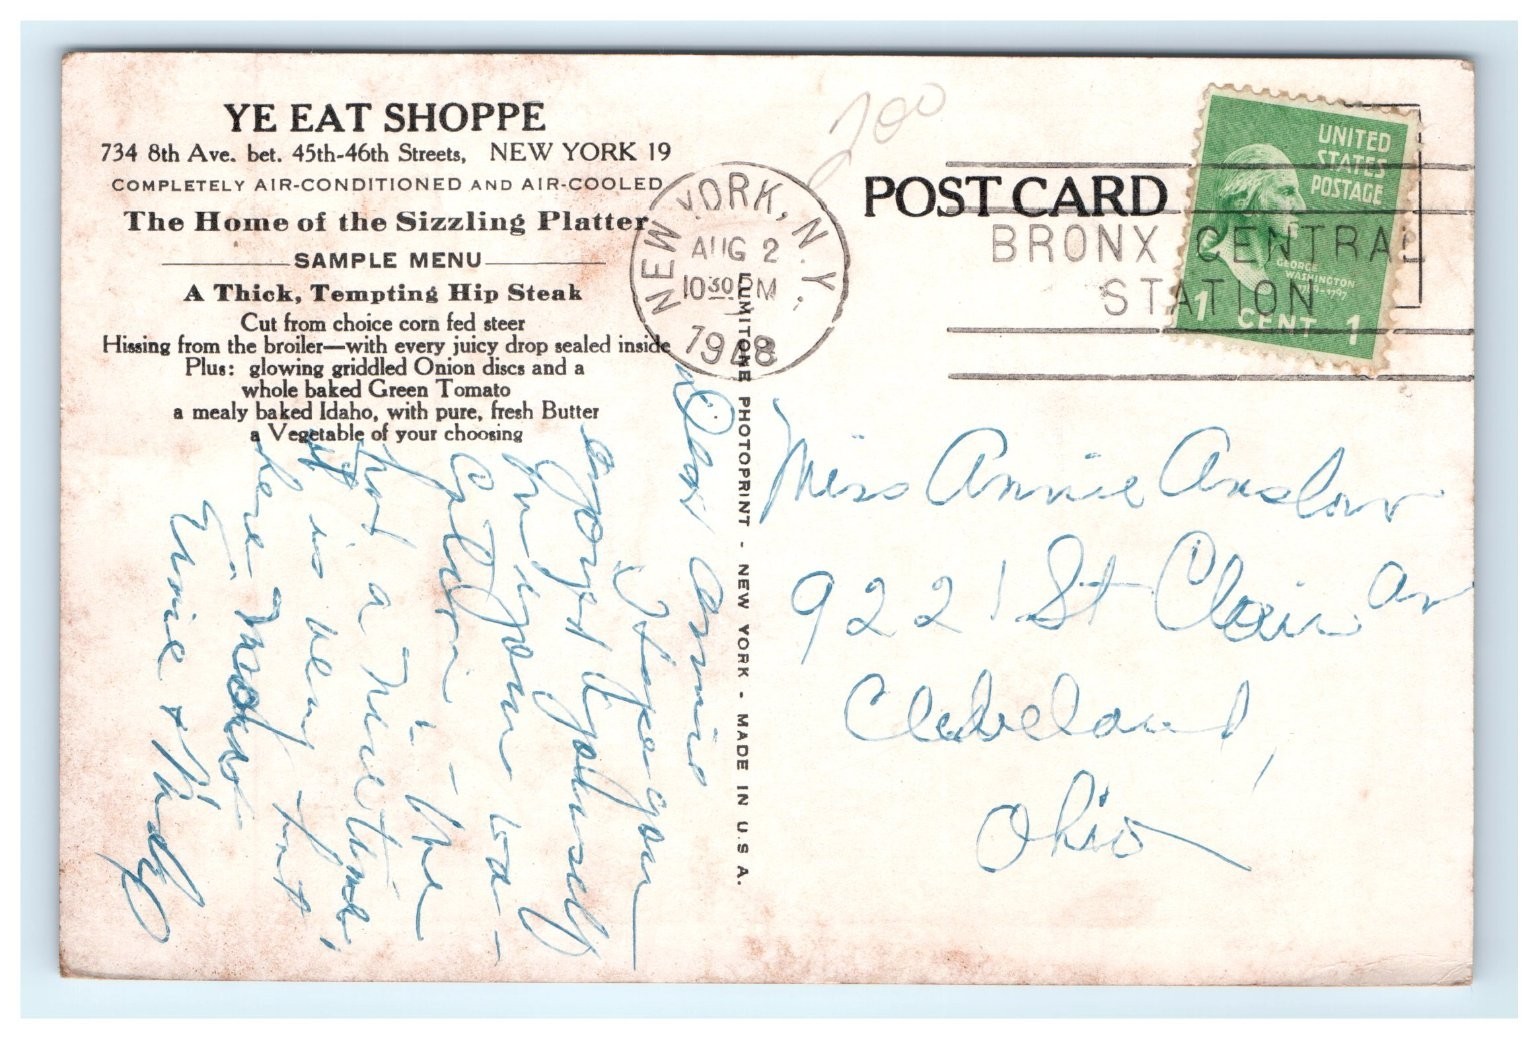 YE EAT SHOPPE
734 8th Ave. bet. 45th-46th Streets, NEW YORK 19
COMPLETELY AIR-CONDITIONED AND AIR-COOLED
The Home of the Sizzling Platter
SAMPLE MENU
A Thick, Tempting Hip Steak
Cut from choice corn fed steer
Hissing from the broiler—with every juicy drop sealed inside
Plus: glowing griddled Onion discs and a
whole baked Green Tomato
a mealy baked Idaho, with pure, fresh Butter
a Vegetable of your choosing
Dear Annie
I hope you
enjoyed yourself
on your va-
cation - We
had a nice time,
it is very hot
here
& 
LUMITONE PHOTOPRINT - NEW YORK - MADE IN U.S.A.
200
POST CARD
NEW YORK, N.Y.
AUG 2
10 30 PM
1948
BRONX CENTRAL
STATION
UNITED
STATES
POSTAGE
GEORGE
WASHINGTON
1789-1797
1 CENT 1
Miss Annie Anslow
9221 St Clair Av
Cleveland,
Ohio